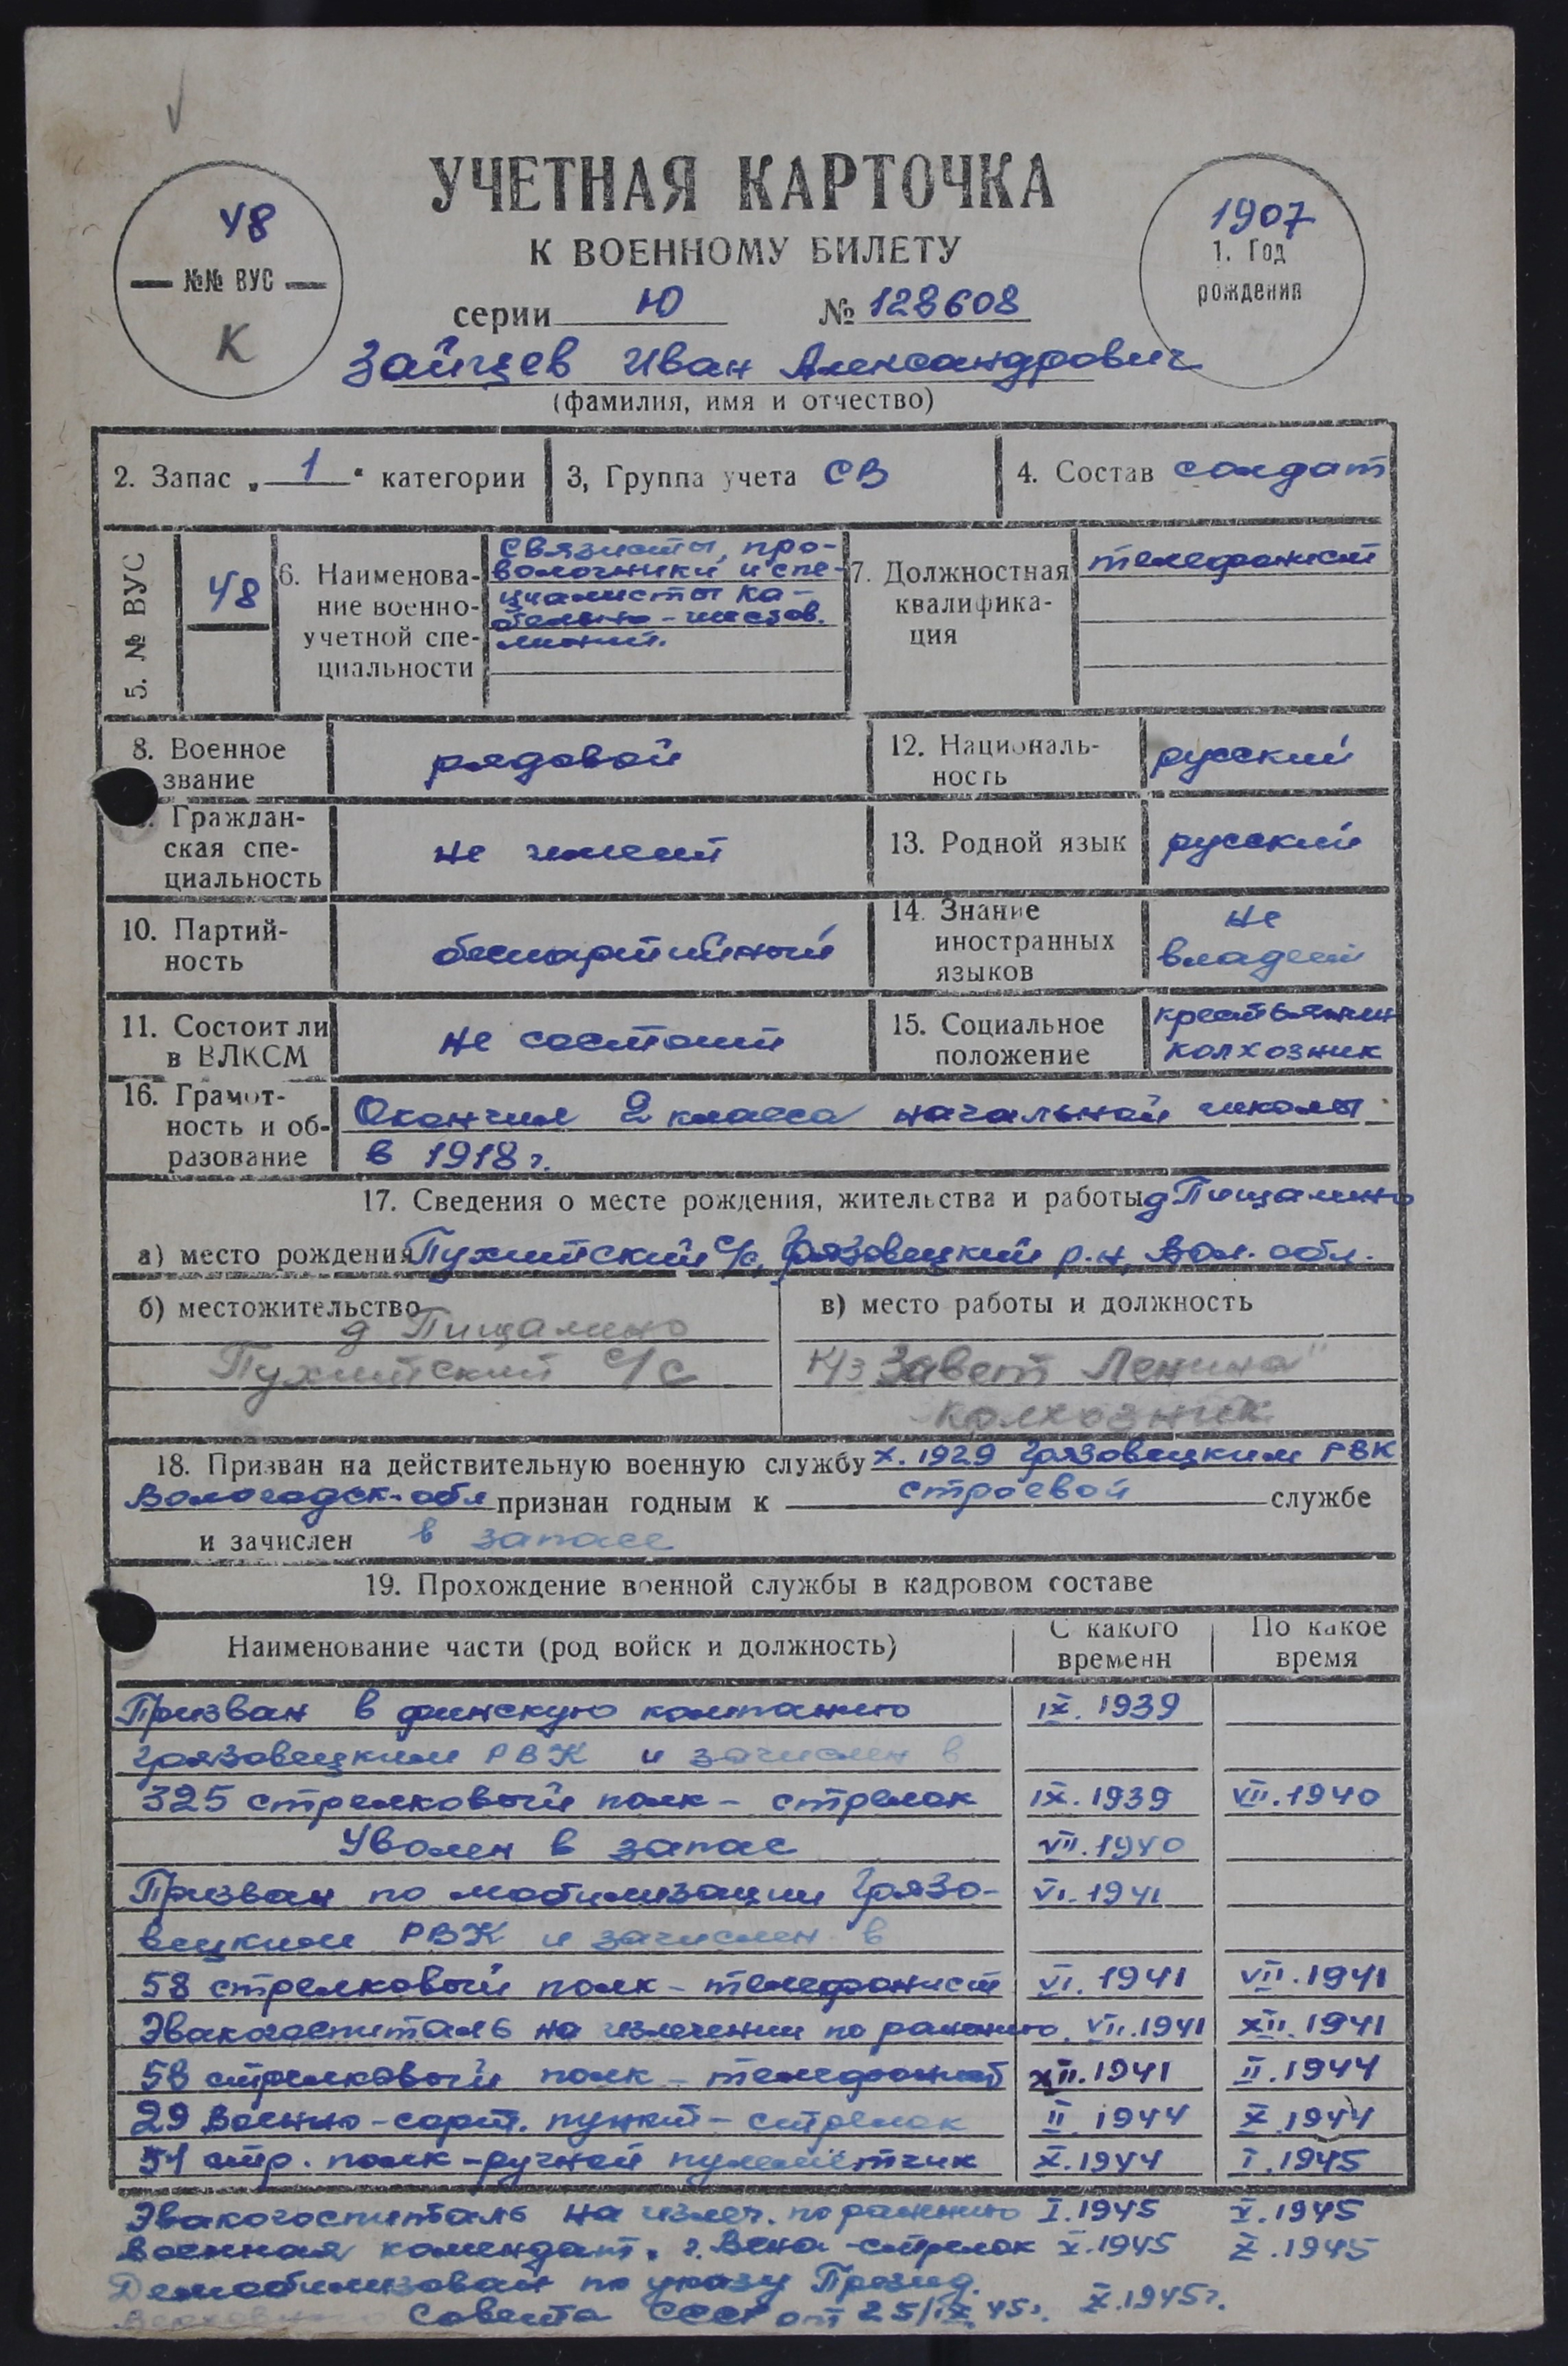 УЧЕТНАЯ КАРТОЧКА
К ВОЕННОМУ БИЛЕТУ
серии Ю № 128608
48
№№ ВУС
К
1907
1. Год
рождения
Зайцев Иван Александрович
(фамилия, имя и отчество)
2. Запас „ 1 " категории
3, Группа учета СВ
4. Состав солдат
5. № ВУС
48
6. Наименова-
ние военно-
учетной спе-
циальности
Связисты, про-
волочники и спе-
циалисты ка-
бельно-шестов.
линий.
7. Должностная
квалифика-
ция
телефонист
8. Военное
звание
рядовой
12. Националь-
ность
русский
Граждан-
ская спе-
циальность
не имеет
13. Родной язык русский
10. Партий-
ность
беспартийный
14. Знание
иностранных
языков
не
владеет
11. Состоит ли
в ВЛКСМ
не состоит
15. Социальное
положение
крестьянин
колхозник
16. Грамот-
ность и об-
разование
Окончил 2 класса начальной школы
в 1918 г.
17. Сведения о месте рождения, жительства и работы д Пищалино
а) место рождения Пухитский с/с, Грязовецкий р.н, Вол. обл.
б) местожительство
д Пищалино
Пухитский с/с
в) место работы и должность
К/з Завет Ленина"
колхозник
18. Призван на действительную военную службу X. 1929 Грязовецким РВК
Вологодск. обл признан годным к строевой службе
и зачислен в запасе
19. Прохождение военной службы в кадровом составе
Наименование части (род войск и должность)
С какого
времени
По какое
время
Призван в финскую компанию IX. 1939
Грязовецким РВК и зачислен в
325 стрелковый полк - стрелок IX. 1939 VII. 1940
Уволен в запас VII. 1940
Призван по мобилизации Грязо- VI. 1941
вецким РВК и зачислен в
58 стрелковый полк - телефонист VI. 1941 VII. 1941
Эвакогоспиталь на излечении по ранению VII. 1941 XII. 1941
58 стрелковый полк - телефонист XII. 1941 II. 1944
29 военно-сорт. пункт - стрелок II 1944 X 1944
51 стр. полк - ручной пулемётчик X. 1944 I. 1945
Эвакогоспиталь на излеч. по ранению I. 1945 V. 1945
Военная комендат. г. Вена - стрелок V. 1945 X. 1945
Демобилизован по указу Презид.
Верховного Совета СССР от 25/IX 45г. X. 1945г.